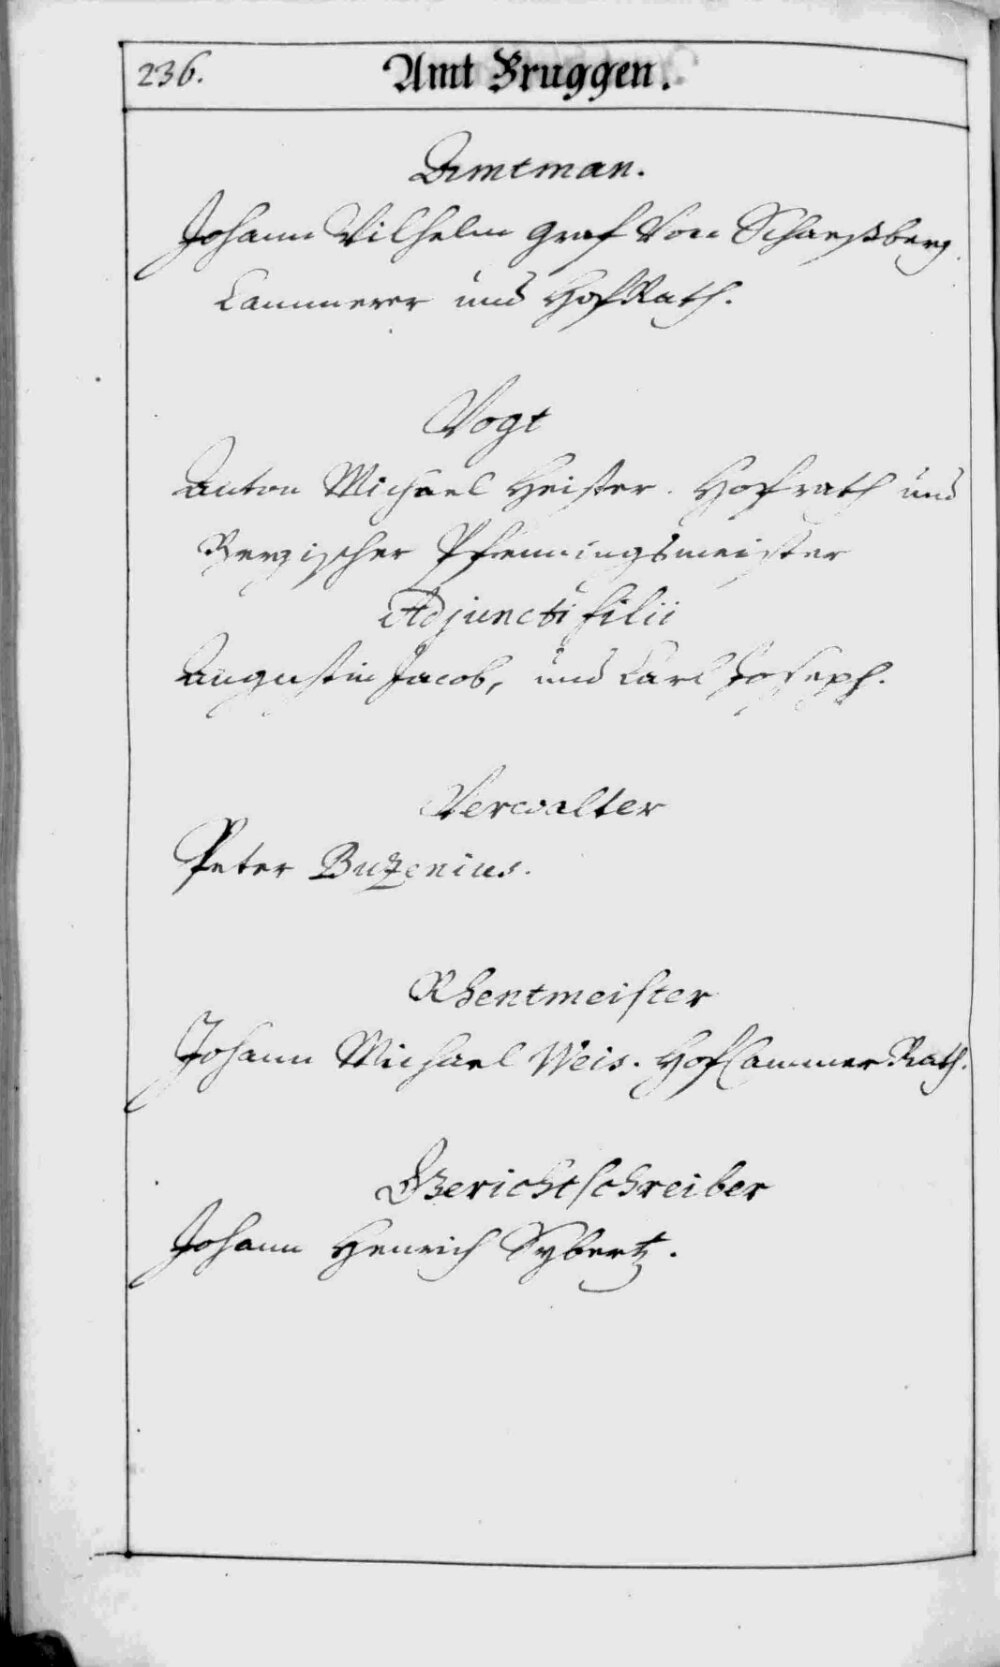 236.
Amt Bruggen.
Amtman.
Johann Wilhelm Graf Von Schaeßberg.
Cammerer und HofRath.
Vogt
Anton Michael Heister. Hofrath und
Bergischer Pfenningsmeister
Adjuncti filii
Augustin Jacob, und Carl Joseph.
Verwalter
Peter Buzenius.
Rhentmeister
Johann Michael Weis. HofCammerRath.
Gerichtschreiber
Johann Henrich Sybertz.